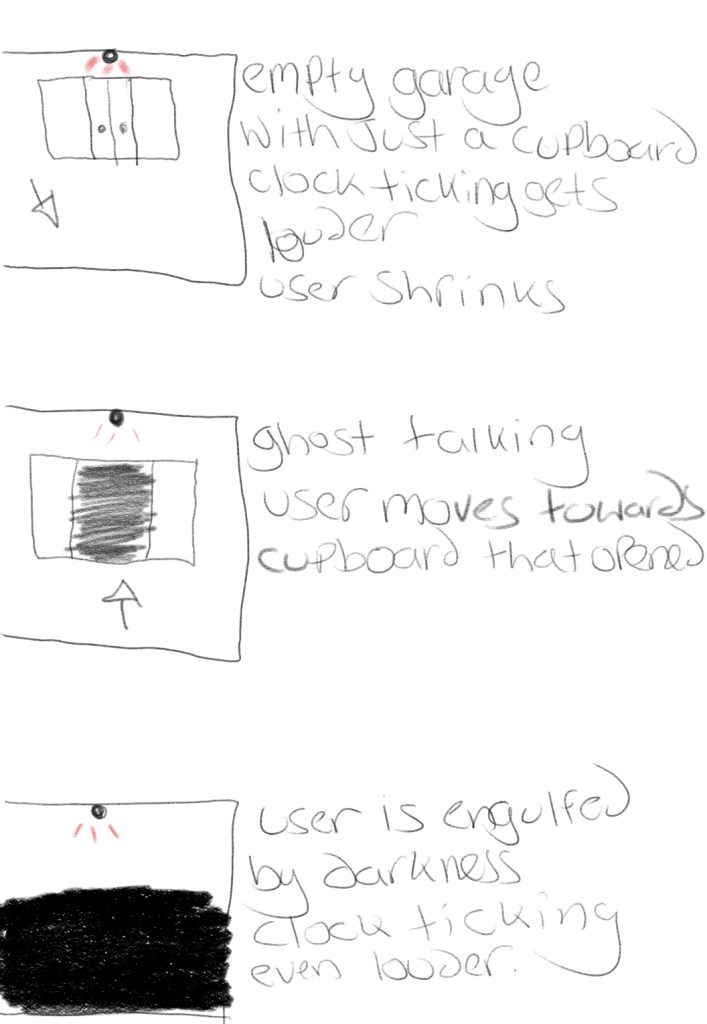 empty garage
with just a cupboard
clock ticking gets
louder
user shrinks
ghost talking
user moves towards
cupboard that opened
user is engulfed
by darkness
clock ticking
even louder.